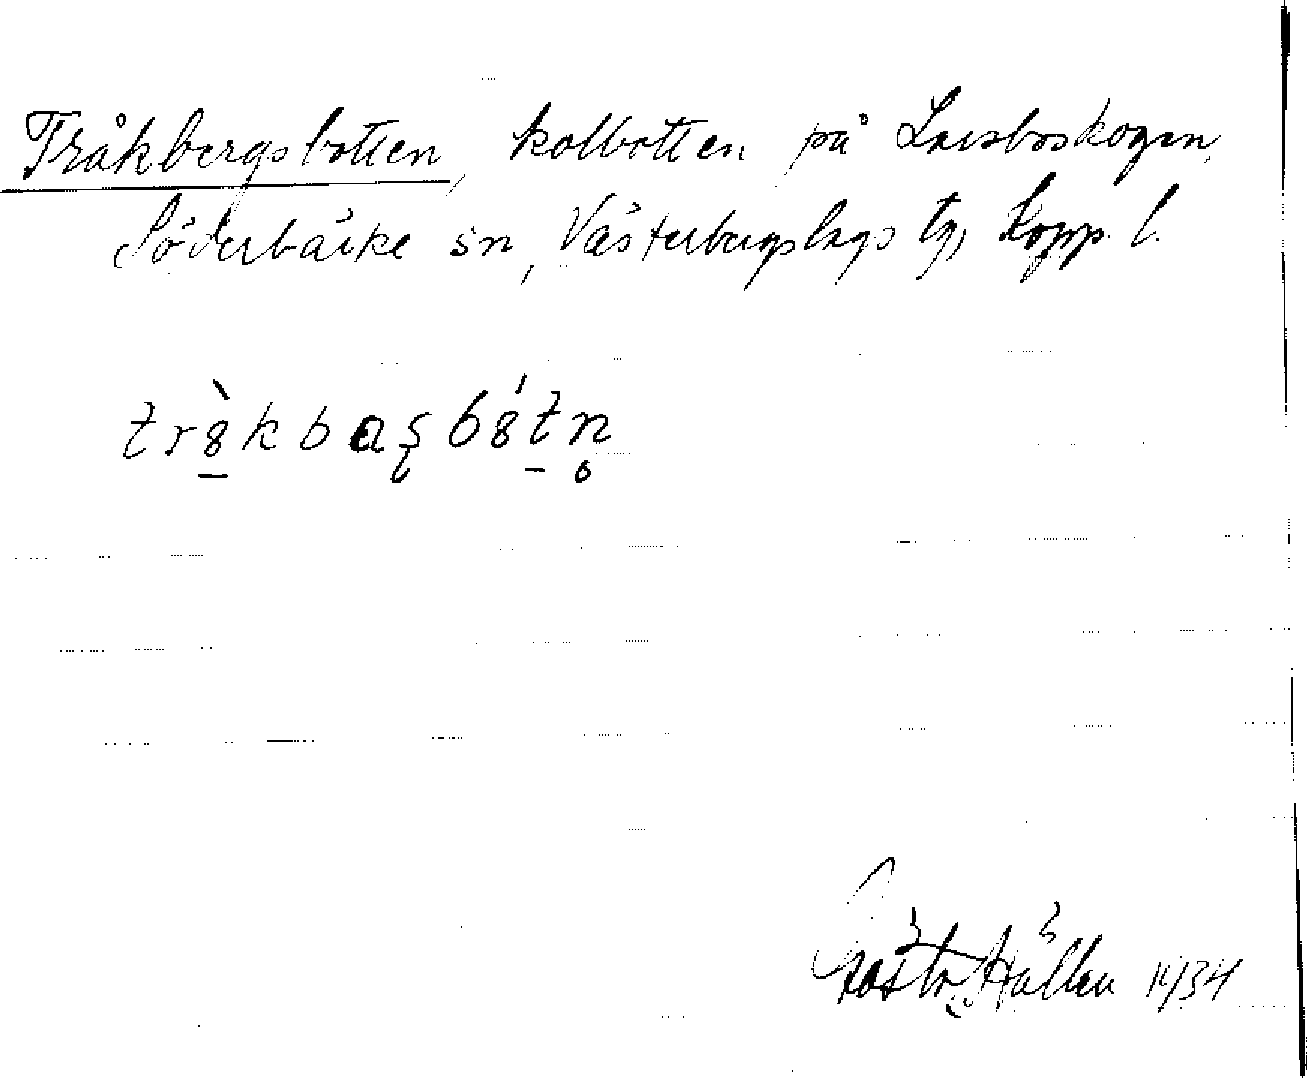 Tråkbergsbotten, kolbotten på Larsboskogen,
Söderbärke sn, Västerbergslags tg, Kopp. l.
trꝏ̀kbaʂbꝏ́tn̥
Gösta Hållén 1934